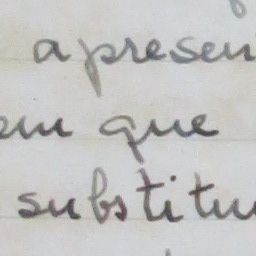 apresen
em que
substitu